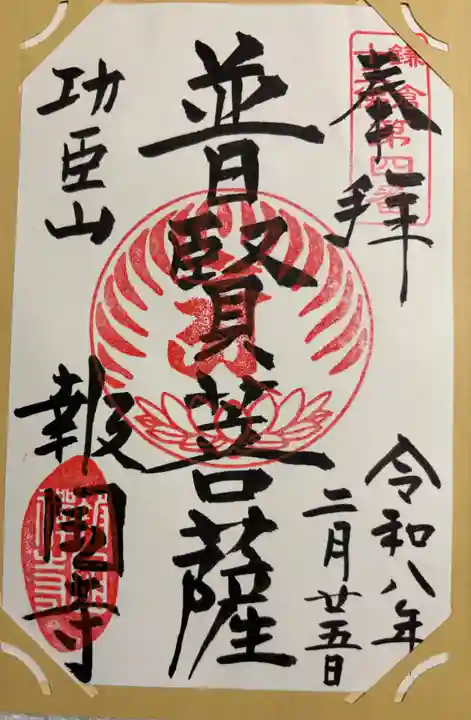 鎌倉
第四番
奉拝
令和八年
二月廿五日
普賢菩薩
功臣山
報國寺